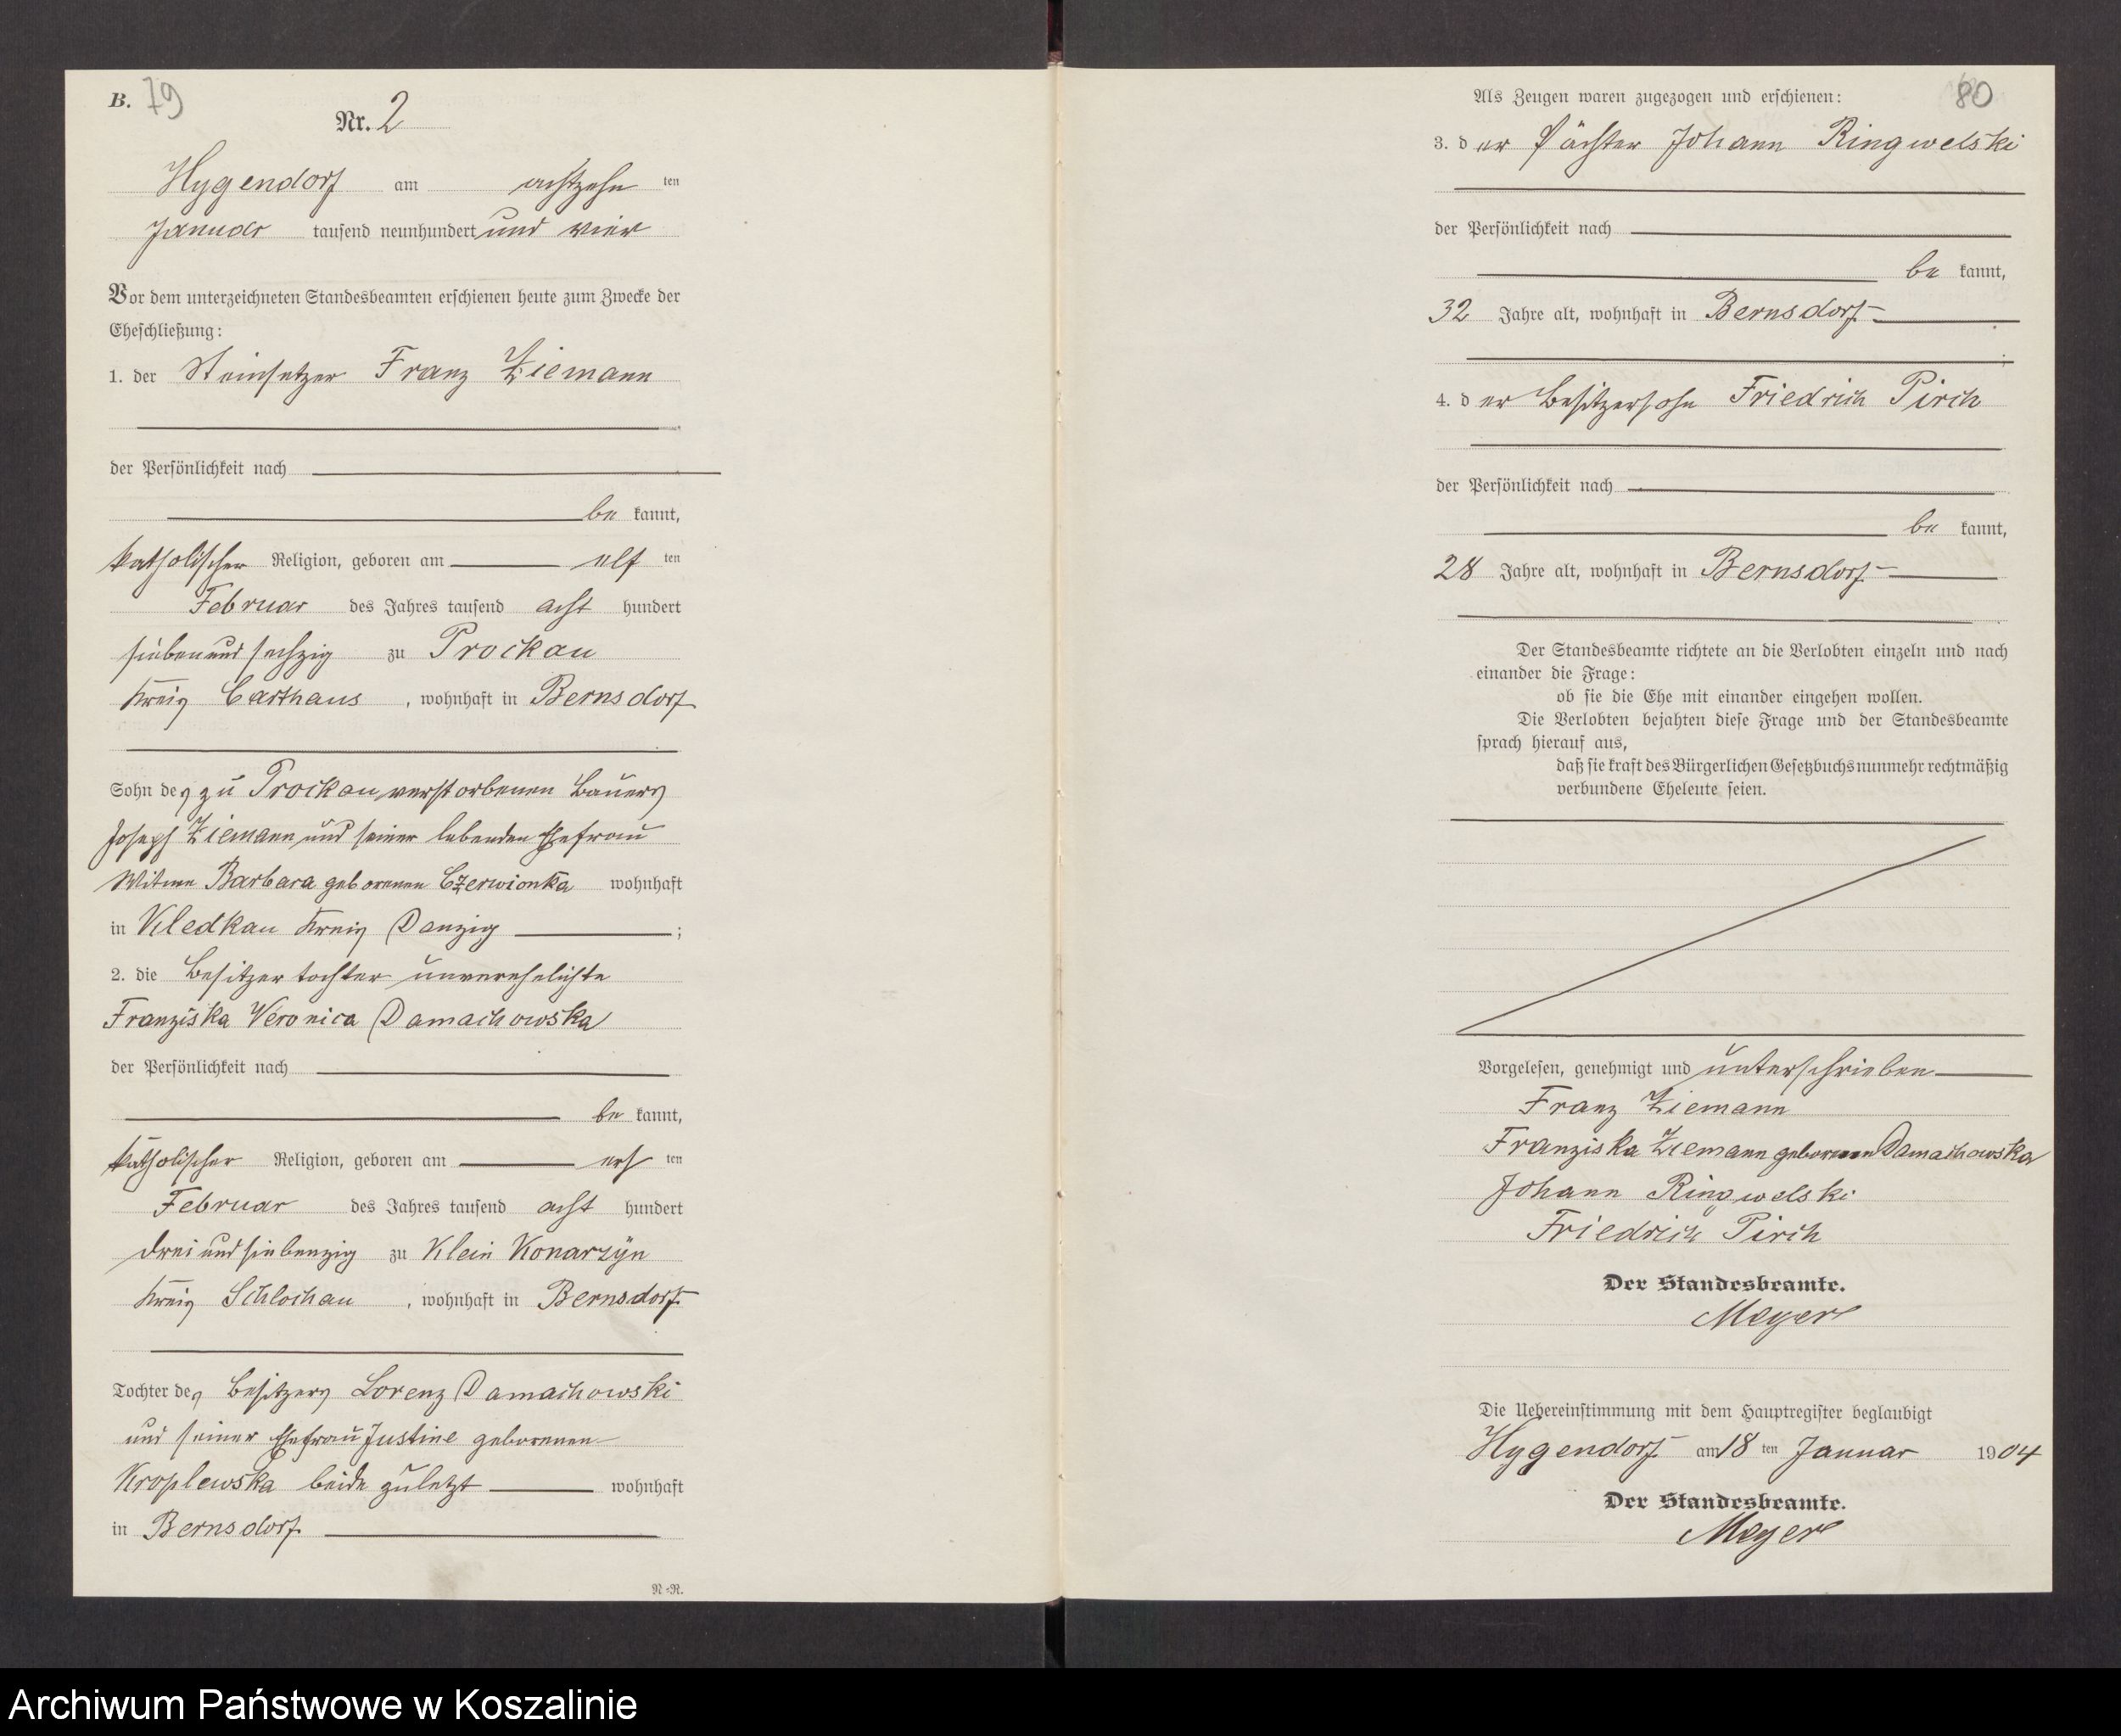 B. 79
Nr. 2
Hygendorf am achtzehn ten
Januar tausend neunhundert und vier
Vor dem unterzeichneten Standesbeamten erschienen heute zum Zwecke der
Eheschließung:
1. der Steinsetzer Franz Ziemann
der Persönlichkeit nach
be kannt,
katholischer Religion, geboren am elf ten
Februar des Jahres tausend acht hundert
siebenundsechzig zu Prockau
Kreis Carthaus, wohnhaft in Bernsdorf
Sohn des zu Prockau verstorbenen Bauers
Joseph Ziemann und seiner lebenden Ehefrau
Witwe Barbara geborenen Czerwionka wohnhaft
in Kledkau Kreis Danzig ;
2. die Besitzertochter unverehelichte
Franziska Veronica Damachowska
der Persönlichkeit nach
be kannt,
katholischer Religion, geboren am ers ten
Februar des Jahres tausend acht hundert
dreiundsiebenzig zu Klein Konarzyn
Kreis Schlochau, wohnhaft in Bernsdorf
Tochter des Besitzers Lorenz Damachowski
und seiner Ehefrau Justine geborenen
Kroplewska beide zuletzt wohnhaft
in Bernsdorf
N-R.
80
Als Zeugen waren zugezogen und erschienen:
3. der Pächter Johann Ringwelski
der Persönlichkeit nach
be kannt,
32 Jahre alt, wohnhaft in Bernsdorf
;
4. der Besitzersohn Friedrich Pirch
der Persönlichkeit nach
be kannt,
28 Jahre alt, wohnhaft in Bernsdorf
Der Standesbeamte richtete an die Verlobten einzeln und nach
einander die Frage:
ob sie die Ehe mit einander eingehen wollen.
Die Verlobten bejahten diese Frage und der Standesbeamte
sprach hierauf aus,
daß sie kraft des Bürgerlichen Gesetzbuchs nunmehr rechtmäßig
verbundene Eheleute seien.
Vorgelesen, genehmigt und unterschrieben
Franz Ziemann
Franziska Ziemann geborenen Damachowska
Johann Ringwelski
Friedrich Pirch
Der Standesbeamte.
Meyer
Die Uebereinstimmung mit dem Hauptregister beglaubigt
Hygendorf am 18 ten Januar 1904
Der Standesbeamte.
Meyer
Archiwum Państwowe w Koszalinie